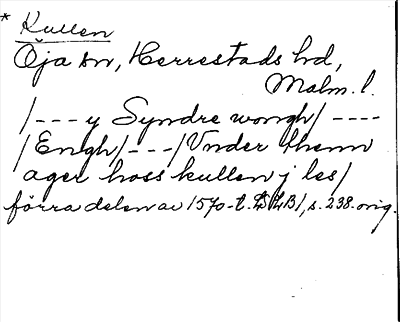 * Kullen
Öja sn, Herrestads hd,
Malm. l.
/--- y Syndre wongh/ ----
/Engh/---/Vnder thenn
ager hoss kullen j les/
förra delen av 1570-t. LB/, s. 238. orig.